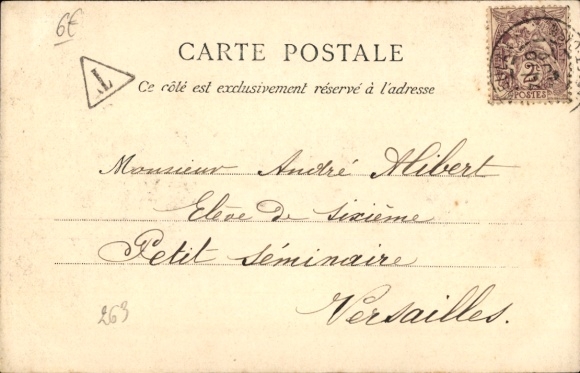 6€
CARTE POSTALE
T
Ce côté est exclusivement réservé à l'adresse
2
POSTES
Monsieur André Alibert
Elève de sixième
Petit séminaire
Versailles.
263